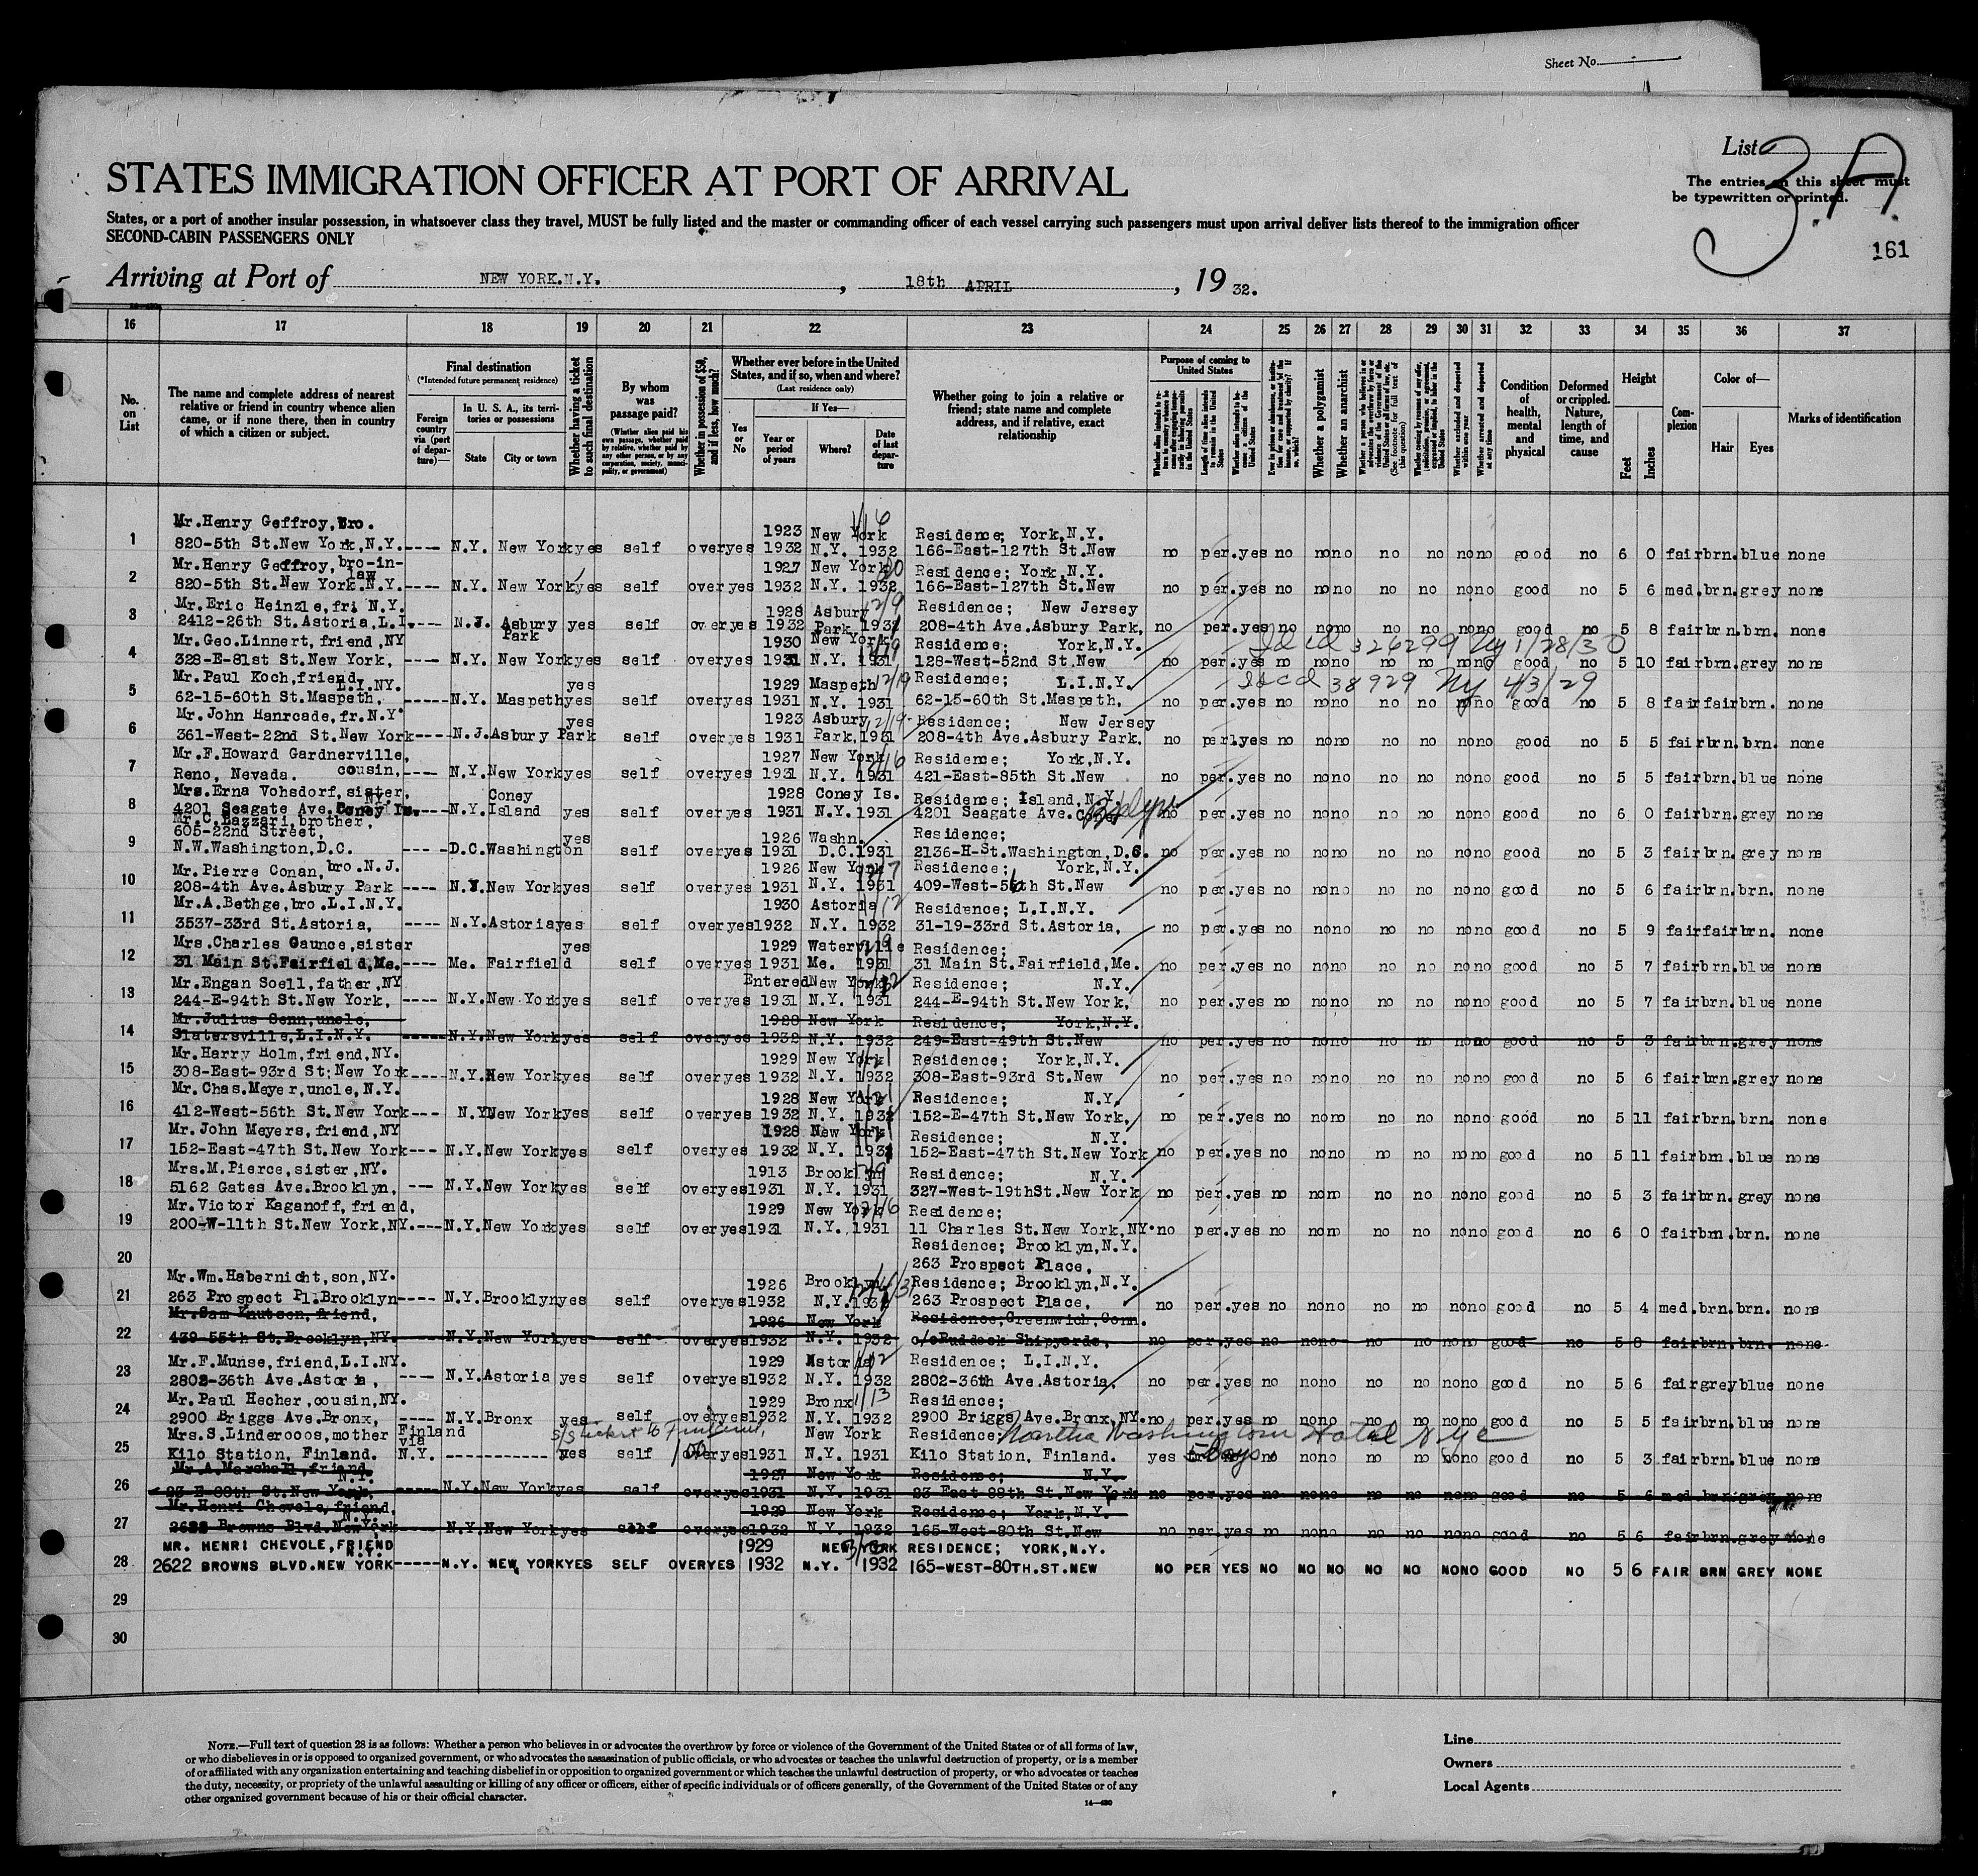 Sheet No.
List 3A
The entries on this sheet must
be typewritten or printed.
161
STATES IMMIGRATION OFFICER AT PORT OF ARRIVAL
States, or a port of another insular possession, in whatsoever class they travel, MUST be fully listed and the master or commanding officer of each vessel carrying such passengers must upon arrival deliver lists thereof to the immigration officer
SECOND-CABIN PASSENGERS ONLY
Arriving at Port of NEW YORK.N.Y. , 18th APRIL , 19 32.
16 17 18 19 20 21 22 23 24 25 26 27 28 29 30 31 32 33 34 35 36 37
No. on List
The name and complete address of nearest relative or friend in country whence alien came, or if none there, then in country of which a citizen or subject.
Final destination
(*Intended future permanent residence)
Foreign country via (port of departure)—
In U. S. A., its territories or possessions
State
City or town
Whether having a ticket to such final destination
By whom was passage paid?
(Whether alien paid his own passage, whether paid by relative, whether paid by any other person, or by any corporation, society, municipality, or government)
Whether in possession of $50, and if less, how much?
Whether ever before in the United States, and if so, when and where?
(Last residence only)
Yes or No
If Yes—
Year or period of years
Where?
Date of last departure
Whether going to join a relative or friend; state name and complete address, and if relative, exact relationship
Purpose of coming to United States
Length of time alien intends to remain in the United States
Whether alien intends to become a citizen of the United States
Whether a polygamist
Whether an anarchist
Whether excluded and deported within one year
Whether arrested and deported at any time
Condition of health, mental and physical
Deformed or crippled. Nature, length of time, and cause
Height
Feet
Inches
Complexion
Color of—
Hair
Eyes
Marks of identification
Mr.Henry Geffroy, Bro. 1923 New York Residence; York,N.Y.
1 820-5th St.New York,N.Y.---- N.Y. New York yes self over yes 1932 N.Y. 1932 166-East-127th St.New no per.yes no no no no no no no good no 6 0 fair brn. blue none
Mr.Henry Geffroy, bro-in-law 1927 New York Residence; York,N.Y.
2 820-5th St.New York.N.Y.---- N.Y. New York yes self over yes 1932 N.Y. 1932 166-East-127th St.New no per.yes no no no no no no no good no 5 6 med. brn. grey none
Mr.Eric Heinzle,fri N.Y. 1928 Asbury 12/9 Residence; New Jersey
3 2412-26th St.Astoria,L.I.---- N.J. Asbury Park yes self over yes 1932 Park 1931 208-4th Ave.Asbury Park, no per.yes no no no no no no no good no 5 8 fair brn. brn. none
Mr.Geo.Linnert, friend,NY 1930 New York Residence; York,N.Y. 326299 Ny 1/28/30
4 328-E-81st St.New York, ---- N.Y. New York yes self over yes 1931 N.Y. 1931 128-West-52nd St.New no per.yes no no no no no no no good no 5 10 fair brn. grey none
Mr.Paul Koch,friend L.I.NY. yes 1929 Maspeth 12/19 Residence; L.I.N.Y. 38929 Ny 4/3/29
5 62-15-60th St.Maspeth, -----N.Y. Maspeth yes self over yes 1931 N.Y. 1931 62-15-60th St.Maspeth, no per.yes no no no no no no no good no 5 8 fair fair brn. none
Mr.John Hanrcade,fr.N.Y. yes 1923 Asbury 12/19 Residence; New Jersey
6 361-West-22nd St.New York----N.J.Asbury Park self over yes 1931 Park,1931 208-4th Ave.Asbury Park. no per.yes no no no no no no no good no 5 5 fair brn. brn. none
Mr.F.Howard Gardnerville, 1927 New York Residence; York,N.Y.
7 Reno, Nevada. cousin, ---- N.Y.New York yes self over yes 1931 N.Y. 1931 421-East-85th St.New no per.yes no no no no no no no good no 5 5 fair brn. blue none
Mrs.Erna Vohsdorf,sister, NY. Coney 1928 Coney Is. Residence; Island,N.Y.
8 4201 Seagate Ave.Coney Is.----N.Y. Island yes self over yes 1931 N.Y. 1931 4201 Seagate Ave. Coney Bklyn no per.yes no no no no no no no good no 6 0 fair brn. grey none
Mr.C.Lazzari,brother,
605-22nd Street, yes 1926 Washn. Residence;
9 N.W.Washington,D.C. ----D.C.Washington self over yes 1931 D.C.1931 2136-H-St.Washington,D.C. no per.yes no no no no no no no good no 5 3 fair brn. grey none
Mr.Pierre Conan, bro.N.J. 1926 New York Residence; York,N.Y.
10 208-4th Ave.Asbury Park ---- N.Y.New York yes self over yes 1931 N.Y. 1931 409-West-56th St.New no per.yes no no no no no no no good no 5 6 fair brn. brn. none
Mr.A.Bethge,bro.L.I.N.Y. 1930 Astoria 1/12 Residence; L.I.N.Y.
11 3537-33rd St.Astoria, ---- N.Y.Astoria yes self over yes 1932 N.Y. 1932 31-19-33rd St.Astoria, no per.yes no no no no no no no good no 5 9 fair fair brn. none
Mrs.Charles Gaunce,sister yes 1929 Waterville Residence;
12 31 Main St.Fairfield,Me.---- Me. Fairfield self over yes 1931 Me. 1931 31 Main St.Fairfield,Me. no per.yes no no no no no no no good no 5 7 fair brn. blue none
Mr.Engan Soell,father,NY Entered New York Residence; N.Y.
13 244-E-94th St.New York, ---- N.Y.New York yes self over yes 1931 N.Y. 1931 244-E-94th St.New York, no per.yes no no no no no no no good no 5 7 fair brn. blue none
Mr.Julius Senn,uncle, 1928 New York Residence; York,N.Y.
14 Slatersville,L.I.N.Y. -----N.Y.New York yes self over yes 1932 N.Y. 1932 249-East-49th St.New no per.yes no no no no no no no good no 5 3 fair brn. grey none
Mr.Harry Holm,friend,NY. 1929 New York Residence; York,N.Y.
15 308-East-93rd St:New York----N.Y.New York yes self over yes 1932 N.Y. 1932 308-East-93rd St.New no per.yes no no no no no no no good no 5 6 fair brn. grey none
Mr.Chas.Meyer,uncle,N.Y. 1928 New York Residence; N.Y.
16 412-West-56th St.New York--- N.Y.New York yes self over yes 1932 N.Y. 1932 152-E-47th St.New York, no per.yes no no no no no no no good no 5 11 fair brn. brn. none
Mr.John Meyers,friend,NY 1928 New York Residence; N.Y.
17 152-East-47th St.New York--- N.Y.New York yes self over yes 1932 N.Y. 1931 152-East-47th St.New York no per.yes no no no no no no no good no 5 11 fair brn. blue none
Mrs.M.Pierce,sister,NY. 1913 Brooklyn Residence; N.Y.
18 5162 Gates Ave.Brooklyn, --- N.Y.New York yes self over yes 1931 N.Y. 1931 327-West-19thSt.New York no per.yes no no no no no no no good no 5 3 fair brn. grey none
Mr.Victor Kaganoff,friend, 1929 New York Residence;
19 200-W-11th St.New York,NY.---N.Y.New York yes self over yes 1931 N.Y. 1931 11 Charles St.New York,NY. no per.yes no no no no no no no good no 6 0 fair brn. brn. none
Residence; Brooklyn,N.Y.
20 263 Prospect Place,
Mr.Wm.Habernicht,son,NY. 1926 Brooklyn Residence; Brooklyn,N.Y.
21 263 Prospect Pl.Brooklyn---- N.Y.Brooklyn yes self over yes 1932 N.Y.1931 263 Prospect Place, no per.yes no no no no no no no good no 5 4 med. brn. brn. none
Mr.Sam Knutson,friend, 1926 New York Residence,Greenwich,Conn.
22 439-55th St.Brooklyn,NY.----N.Y.New York yes self over yes 1932 N.Y. 1932 c/o Ruddock Shipyards, no per.yes no no no no no no no good no 5 8 fair brn. brn. none
Mr.F.Munse,friend,L.I.NY. 1929 Astoria 1/12 Residence; L.I.N.Y.
23 2802-36th Ave.Astoria, ---- N.Y.Astoria yes self over yes 1932 N.Y. 1932 2802-36th Ave.Astoria, no per.yes no no no no no no no good no 5 6 fair grey blue none
Mr.Paul Hecher,cousin,NY. 1929 Bronx 1/13 Residence;
24 2900 Briggs Ave.Bronx, ---- N.Y.Bronx yes self over yes 1932 N.Y. 1932 2900 Briggs Ave.Bronx,NY. no per.yes no no no no no no no good no 5 5 fair brn. blue none
Mrs.S.Linderooos,mother Finland via S/S ticket to Finland, New York Residence; Martha Washington Hotel Nyc
25 Kilo Station, Finland. N.Y. ------------ yes self 100 over yes 1931 N.Y. 1931 Kilo Station, Finland. yes 5 Days no no no no no no no good no 5 3 fair brn. blue none
Mr.A.Marshall,friend, N.Y. 1927 New York Residence; N.Y.
26 23 E-88th St.New York, -----N.Y.New York yes self over yes 1931 N.Y. 1931 23 East-88th St.New York no per.yes no no no no no no no good no 5 6 med. brn. grey none
Mr.Henri Chevole,friend, N.Y. 1929 New York Residence; York,N.Y.
27 2622 Browns Blvd.New York----N.Y.New York yes self over yes 1932 N.Y. 1932 165-West-80th St.New no per.yes no no no no no no no good no 5 6 fair brn. grey none
MR. HENRI CHEVOLE,FRIEND N.Y. 1929 NEW YORK RESIDENCE; YORK,N.Y.
28 2622 BROWNS BLVD.NEW YORK-----N.Y. NEW YORK YES SELF OVER YES 1932 N.Y. 1932 165-WEST-80TH.ST.NEW NO PER YES NO NO NO NO NO NO NO GOOD NO 5 6 FAIR BRN GREY NONE
29
30
NOTE.—Full text of question 28 is as follows: Whether a person who believes in or advocates the overthrow by force or violence of the Government of the United States or of all forms of law,
or who disbelieves in or is opposed to organized government, or who advocates the assassination of public officials, or who advocates or teaches the unlawful destruction of property, or is a member
of or affiliated with any organization entertaining and teaching disbelief in or opposition to organized government or which teaches the unlawful destruction of property, or who advocates or teaches
the duty, necessity, or propriety of the unlawful assaulting or killing of any officer or officers, either of specific individuals or of officers generally, of the Government of the United States or of any
other organized government because of his or their official character.
14—420
Line
Owners
Local Agents